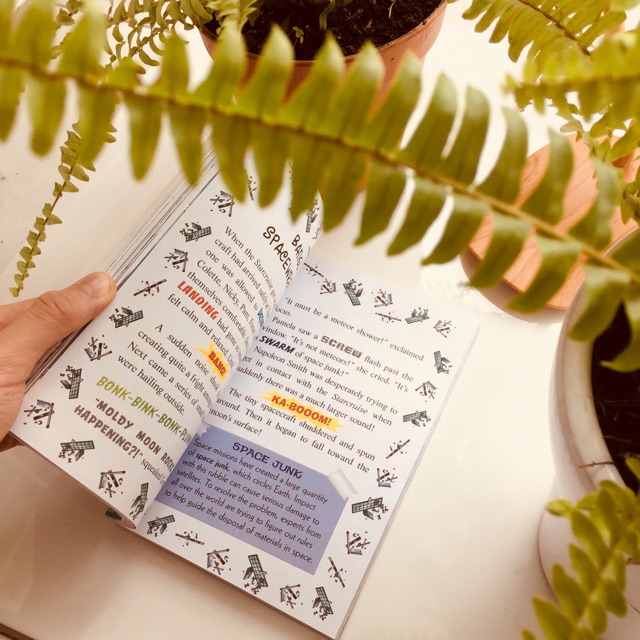 BA
SPACESH
When the Starcruise
craft had arrived
one was allowed
Colette, Nicky, Pam,
themselves comfortable
LANDING had gone
felt calm and relaxed
BANG
A sudden noise
creating quite a fright
Next came a series of
were hailing outside.
BONK-BINK-BONK
"MOLDY MOON RO
HAPPENING?!" squeaked
"It must be a meteor shower!" exclaimed
ocus.
Pamela saw a SCREW flash past the
window. "It's not meteors!" she cried. "It's
SWARM of space junk!"
Napoleon Smith was desperately trying to
in contact with the Starcruise when
suddenly there was a much larger sound!
KA-BOOOM!
The tiny spacecraft shuddered and spun
around. Then it began to fall toward the
moon's surface!
SPACE JUNK
Space missions have created a large quantity
of space junk, which circles Earth. Impact
with this rubble can cause serious damage to
satellites. To resolve the problem, experts from
all over the world are trying to figure out rules
to help guide the disposal of materials in space.